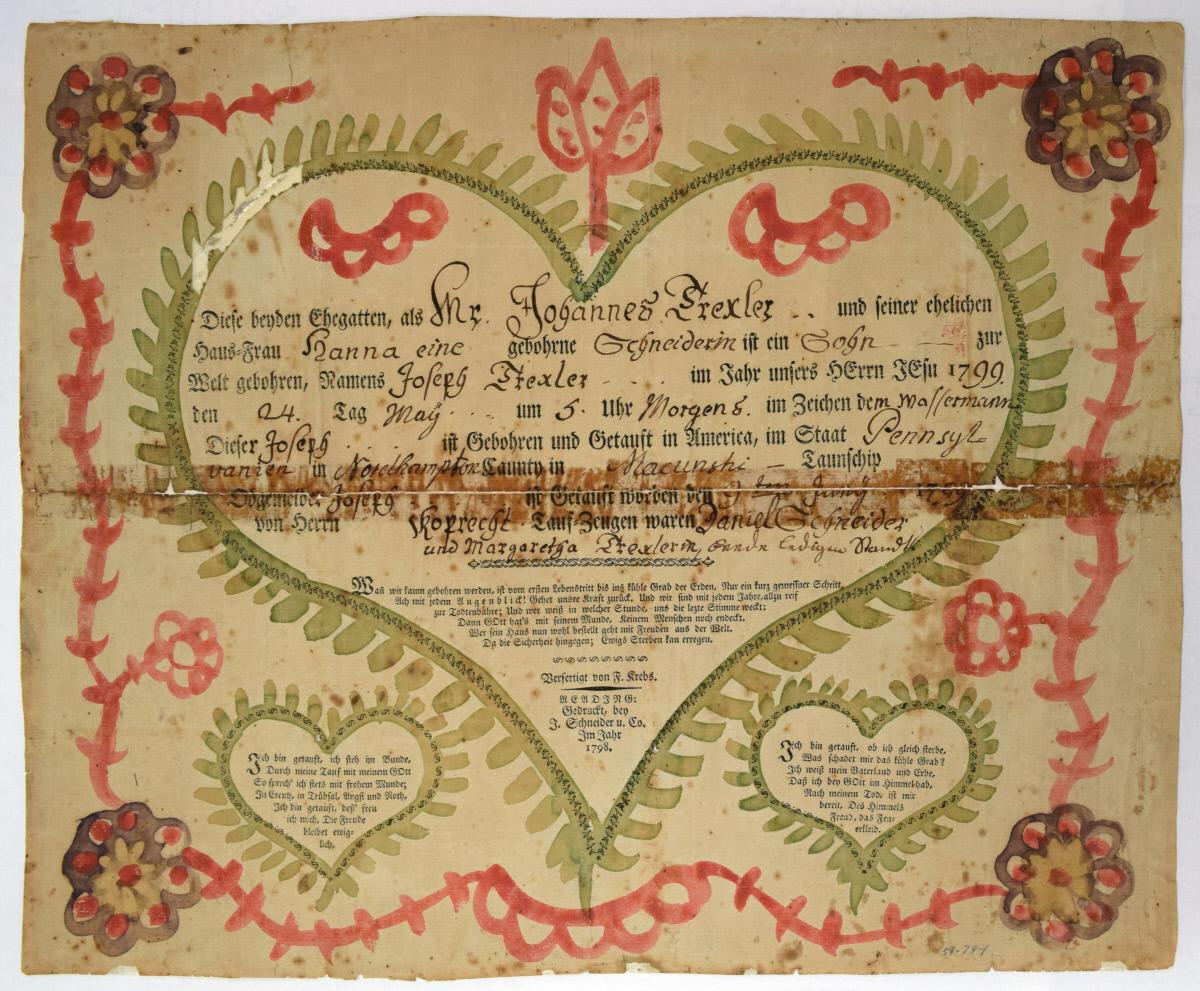 Diese beyden Ehegatten, als Mr. Johannes Trexler .. und seiner ehelichen
Haus-Frau Hanna eine gebohrne Schneiderin ist ein Sohn — zur
Welt gebohren, Namens Joseph Trexler . . . im Jahr unsers HErrn JEsu 1799.
den 24. Tag May . . . um 5. Uhr Morgens. im Zeichen dem Wassermann
Dieser Joseph . . . ist Gebohren und Getauft in America, im Staat Pennsyl-
vanien in Nordhampton Caunty in Macunshi — Taunschip
Obgemelder Joseph ist Getauft worden den 9ten Juny 1799
von Herrn Koprecht. Tauf-Zeugen waren Daniel Schneider
und Margaretha Trexlerin, beede ledigen Stands
Wañ wir kaum gebohren werden, ist vom ersten Lebenstritt bis ins kühle Grab der Erden, Nur ein kurz gemessner Schritt,
Ach mit jedem Augenblick! Gehet unsre Kraft zurück, Und wir sind mit jedem Jahre, allzu reif
zur Todtenbahre; Und wer weiß in welcher Stunde, uns die lezte Stimme weckt:
Dann GOtt hat's mit seinem Munde, Keinem Menschen noch endeckt.
Wer sein Haus nun wohl bestellt geht mit Freuden aus der Welt.
Da die Sicherheit hingegen; Ewigs Sterben kan erregen.
Verfertigt von F. Krebs.
READJNG:
Gedruckt, bey
J. Schneider u. Co.
Jm Jahr
1798.
Jch bin getauft, ich steh im Bunde,
Durch meine Tauf mit meinem GOtt
So sprech' ich stets mit frohem Munde;
Jn Creutz, in Trübsal, Angst und Noth,
Jch bin getauft, deß' freu
ich mich, Die Freude
bleibet ewig-
lich.
Jch bin getauft, ob ich gleich sterbe,
Was schadet mir das kühle Grab?
Jch weiß mein Vaterland und Erbe,
Daß ich bey GOtt im Himmel hab,
Nach meinem Tod, ist mir
bereit, Des Himmels
Freud, das Fey-
erkleid.
59-79-1